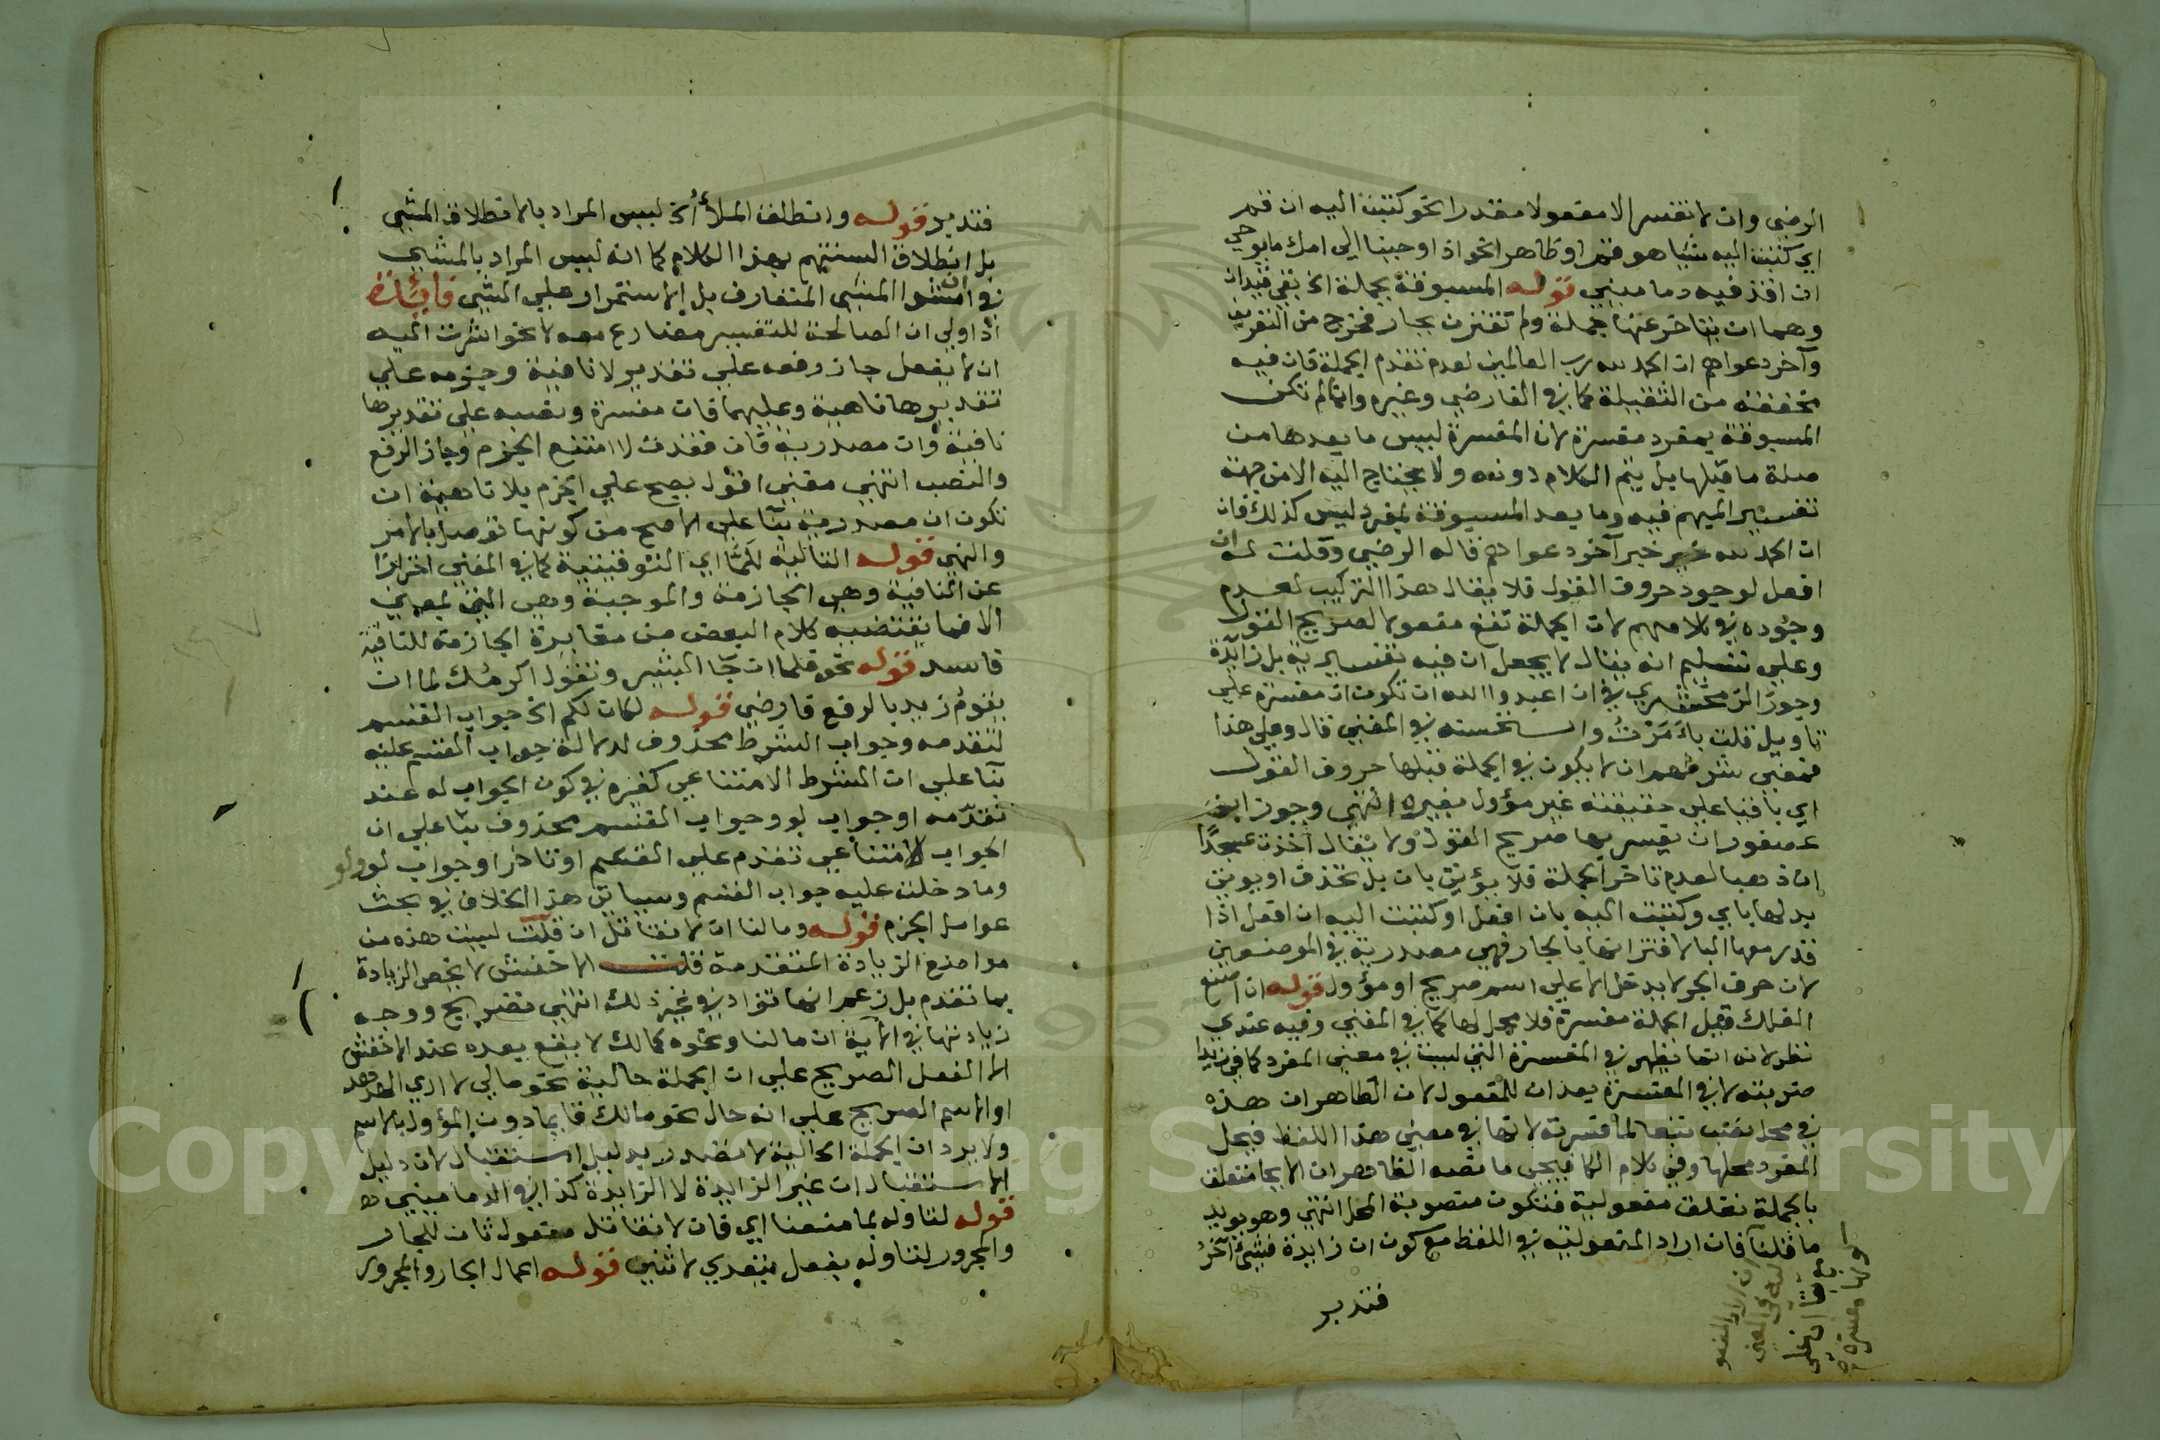 الرضي وان لا تفسر الا مفعولا مقدرا نحو كتبت اليه ان قم
اي كتبت اليه شيئا هو قم او ظاهرا نحو اذ اوحينا الى امك ما يوحي
ان اقذفيه دماميني قوله المسبوقة بجملة الخ بقي قيدان
وهما ان يتاخر عنها جملة ولم تقترن بجار فخرج من التعريف
وآخر دعواهم ان الحمد لله رب العالمين لعدم تقدم الجملة فان فيه
مخففة من الثقيلة كما في الفارضي وغيره وانما لم تكن
المسبوقة بمفرد مفسرة لان المفسرة ليس ما بعدها من
صلة ما قبلها بل يتم الكلام دونه ولا يحتاج اليه الا من جهة
تفسير المبهم فيه وما بعد المسبوقة بمفرد ليس كذلك فان
ان الحمد لله خبر آخر دعواهم قاله الرضي وقلت له ان
افعل لوجود حروف القول فلا يقال هذا التركيب لعدم
وجوده في كلامهم لان الجملة تقع مفعولا لصريح القول
وعلي تسليم انه يقال لا يجعل ان فيه تفسيرية بل زايدة
وجوز الزمخشري في ان اعبدوا الله ان تكون ان مفسرة علي
تاويل قلت بأمرت واستحسنه في المغني قال وعلي هذا
فمعني شرطهم ان لا يكون في الجملة قبلها حروف القول
اي باقيا علي حقيقته غير مؤول بغيره انتهي وجوز ابن
عصفور ان يفسر بها صريح القول ولا يقال اخذت عسجدا
ان ذهبا لعدم تاخر الجملة فلا يؤتي بان بل تحذف او يوتي
بدلها باي وكتبت اليه بان افعل او كتبت اليه ان افعل اذا
قدر معها البا لاقترانها بالجار فهي مصدرية في الموضعين
لان حرف الجر لا يدخل الا علي اسم صريح او مؤول قوله ان اصنع
الفلك قيل الجملة مفسرة فلا محل لها كما في المغني وفيه عندي
نظر لانه انما يظهر في المفسرة التي ليست في معني المفرد كما في زيدا
ضربته لا في المفسرة بعد ان للمفعول لان الظاهر ان هذه
في محل نصب تبعا لما فسرته لانها في معني هذا اللفظ فيحل
المفرد محلها وفي كلام الكافيجي ما نصه الظاهر ان الايحا متعلق
بالجملة تعلق مفعولية فتكون منصوبة المحل انتهي وهو يويد
ما قلنا فان اراد المفعولية في اللفظ مع كون ان زايدة فشئ آخر
فتدبر
فتدبر قوله وانطلق الملأ الخ ليس المراد بالانطلاق المشي
بل انطلاق السنتهم بهذا الكلام كما انه ليس المراد بالمشي
في ان امشوا المشي المتعارف بل الاستمرار علي المشي فايدة
اذا ولي ان الصالحة للتفسير مضارع معه لا نحو اشرت اليه
ان لا يفعل جاز رفعه علي تقدير لا نافية وجزمه علي
تقديرها ناهية وعليهما فان مفسرة ونصبه علي تقديرها
نافية وان مصدرية فان فقدت لا امتنع الجزم وجاز الرفع
والنصب انتهي مغني اقول يصح علي الجزم بلا ناهية ان
تكون ان مصدرية بنا علي الاصح من كونها توصل بالامر
والنهي قوله التالية لما اي التوقيتية كما في المغني احترازا
عن النافية وهي الجازمة والموجبة وهي التي بمعني
الا فما يقتضيه كلام البعض من مغايرة الجازمة للنافية
فاسد قوله نحو فلما ان جا البشير وتقول اكرمك لما ان
يقوم زيد بالرفع فارضي قوله لكان لكم الخ جواب القسم
لتقدمه وجواب الشرط محذوف لدلالة جواب القسم عليه
بنا علي ان الشرط الامتناعي كغيره في كون الجواب له عند
تقدمه او جواب لو وجواب القسم محذوف بنا علي ان
الجواب للامتناعي تقدم علي القسم او تاخر او جواب لو ولو
وما دخلت عليه جواب القسم وسياتي هذا الخلاف في بحث
عوامل الجزم قوله وما لنا ان لا نقاتل ان قلت ليست هذه من
مواضع الزيادة المتقدمة قلت الاخفش لا يخص الزيادة
بما تقدم بل زعم انها تزاد في غير ذلك انتهي تصريح ووجه
زيادتها في الاية ان ما لنا ونحوه كمالك لا يقع بعده عند الاخفش
الا الفعل الصريح علي ان الجملة حالية نحو مالي لا اري الهدهد
او الاسم الصريح علي انه حال نحو مالك قايما دون المؤول بالاسم
ولا يرد ان الجملة الحالية لا تصدر بدليل استقبال لان دليل
الاستقبال ان غير الزايدة لا الزايدة كذا في الدماميني
قوله لتاوله بما منعنا اي فان لا نقاتل مفعول ثان للجار
والمجرور لتاوله بفعل يتعدي لاثنين قوله اعمال الجار والمجرور
Copyright © King Saud University